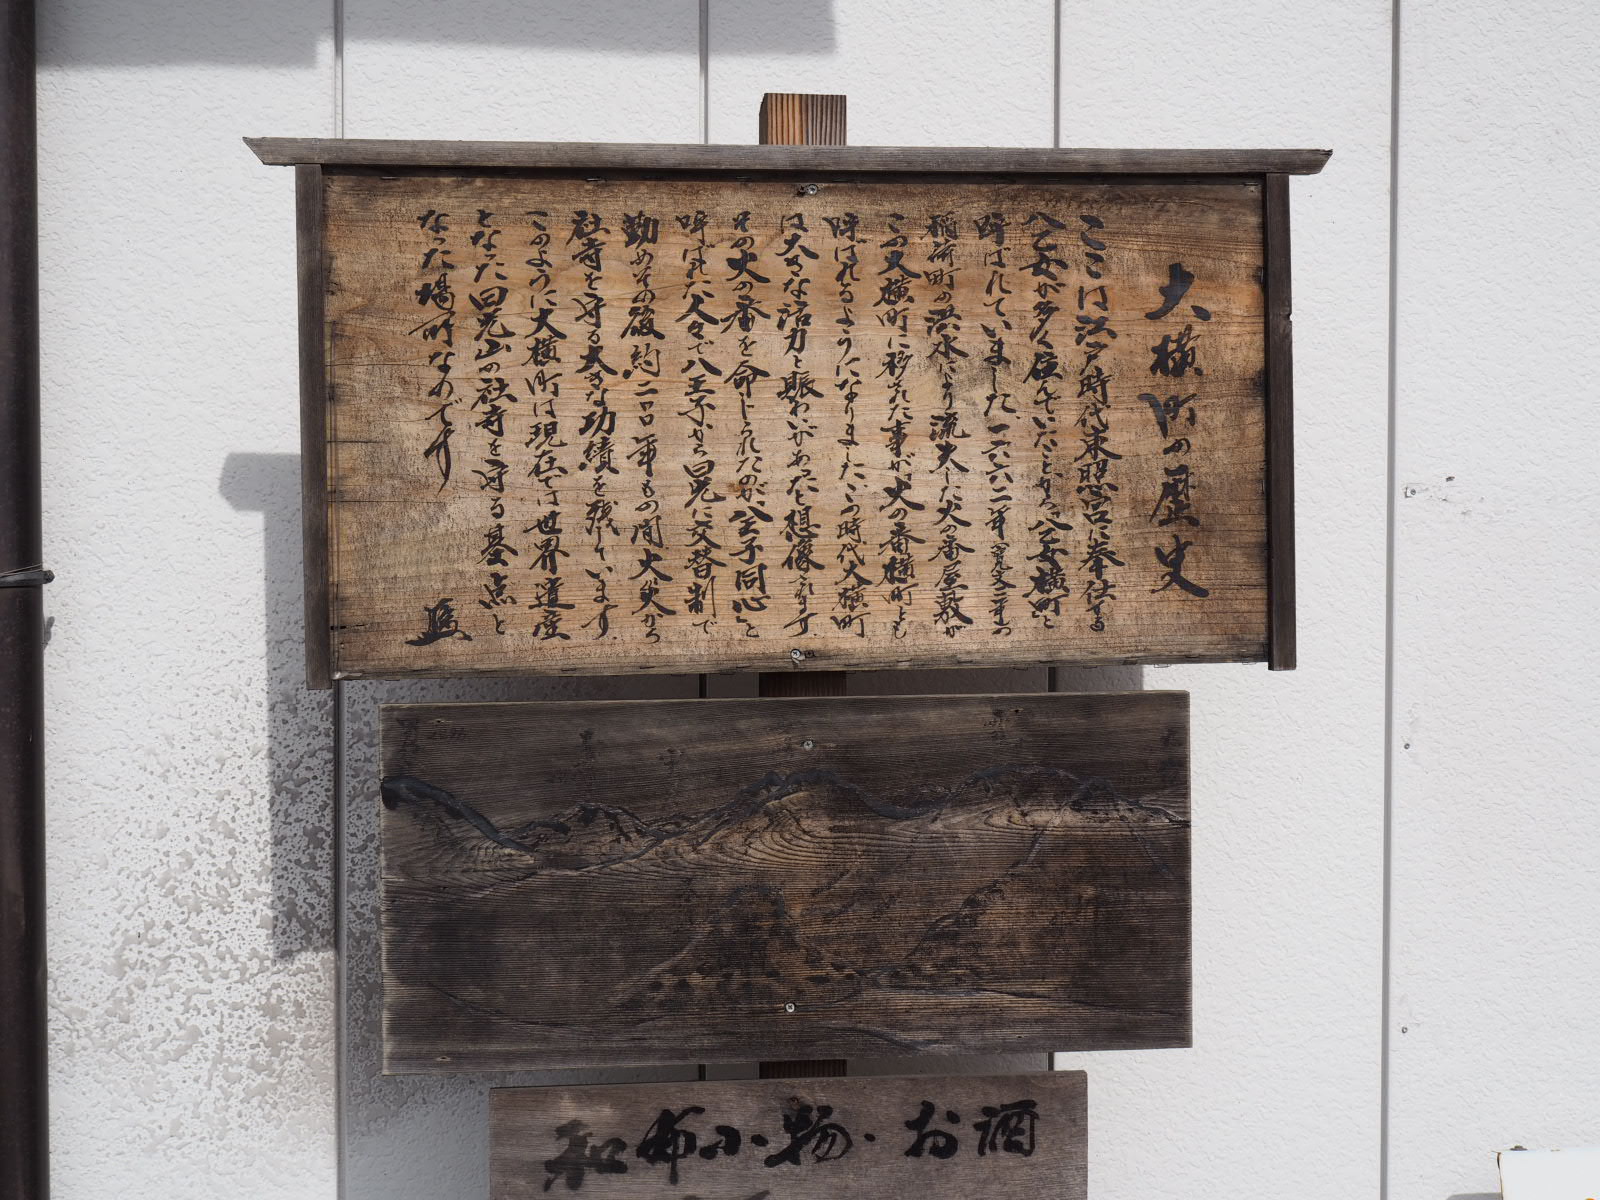 大横町の歴史
ここは江戸時代東照宮に奉仕する
八乙女が多く住んでいたことから「八乙女横町」と
呼ばれていました。一六六二年(寛文二年)の
稲荷町の洪水により流失した火の番屋敷が
この大横町に移された事が「火の番横町」とも
呼ばれるようになりました。この時代大横町
は大きな活力と賑わいがあったと想像されます。
その火の番を命じられたのが「八王子同心」と
呼ばれた人々で八王子から日光に交替制で
勤めその後約二百年もの間火災から
社寺を守る大きな功績を残しています。
このように大横町は現在では世界遺産
となった日光山の社寺を守る基点と
なった場所なのです
和布小物・お酒